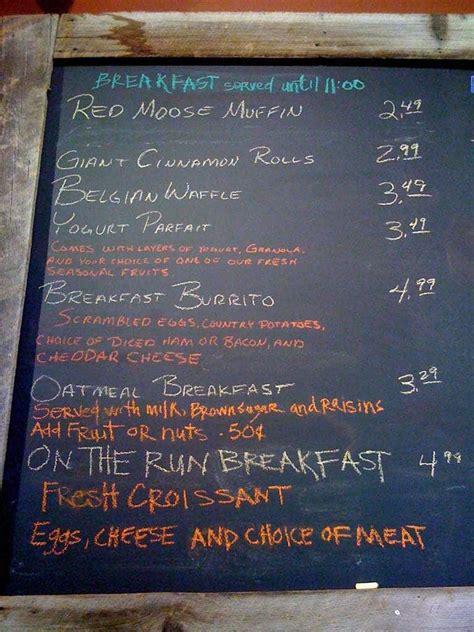 BREAKFAST served until 11:00
RED MOOSE MUFFIN 2.49
GIANT CINNAMON ROLLS 2.99
BELGIAN WAFFLE 3.49
YOGURT PARFAIT 3.49
COMES WITH LAYERS OF YOGURT, GRANOLA,
AND YOUR CHOICE OF ONE OF OUR FRESH
SEASONAL FRUITS.
BREAKFAST BURRITO 4.99
SCRAMBLED EGGS, COUNTRY POTATOES,
CHOICE OF DICED HAM OR BACON, AND
CHEDDAR CHEESE
OATMEAL BREAKFAST 3.29
Served with milk, Brown sugar and Raisins
Add Fruit or nuts - 50¢
ON THE RUN BREAKFAST 4.99
FRESH CROISSANT
Eggs, CHEESE AND CHOICE OF MEAT